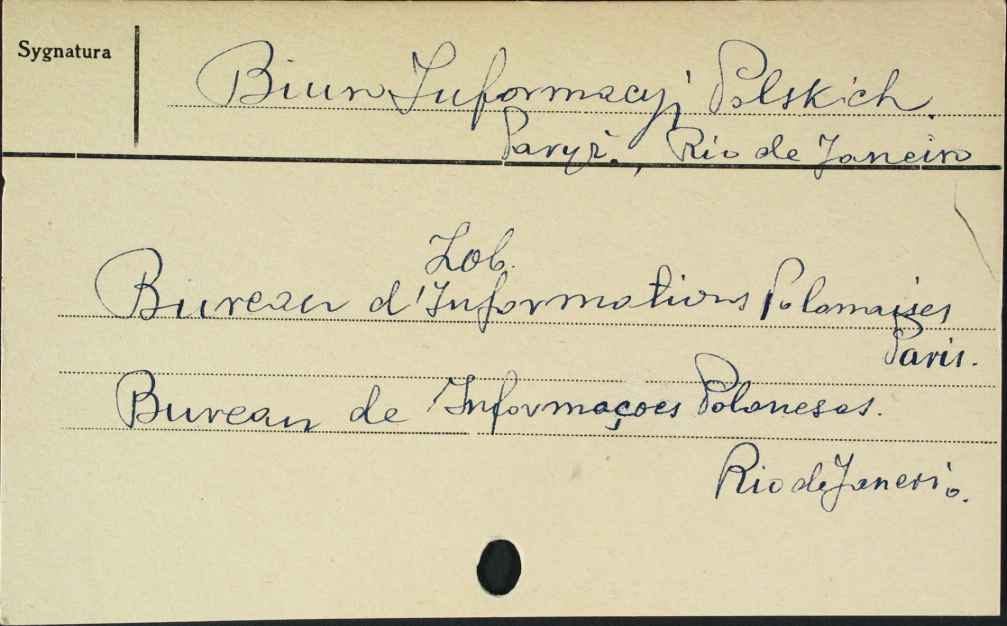 Sygnatura
Biuro Informacyj Polskich.
Paryż., Rio de Janeiro
Zob.
Bureau d'Informations Polonaises
Paris.
Bureau de Informaçoes Polonesas.
Rio de Janerio.